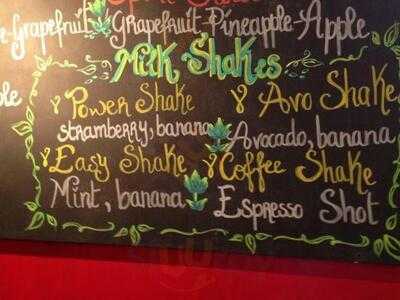 e-Grapefruit Grapefruit-Pineapple-Apple
Milk Shakes
Power Shake
strawberry, banana
Avo Shake
Avocado, banana
Easy Shake
Mint, banana
Coffee Shake
Espresso Shot